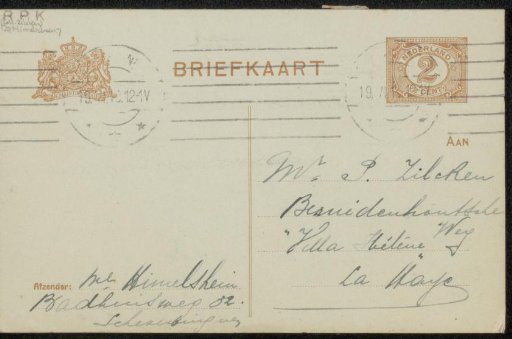 R P K
BRIEFKAART
NEDERLAND
2
CENT
12-1V
19
AAN
Mr P. Zilcken
Bezuidenhoutsche
Weg
"Villa Hélène"
La Haye
Afzender: Me Himelsheim
Badhuisweg 82.
Scheveningen